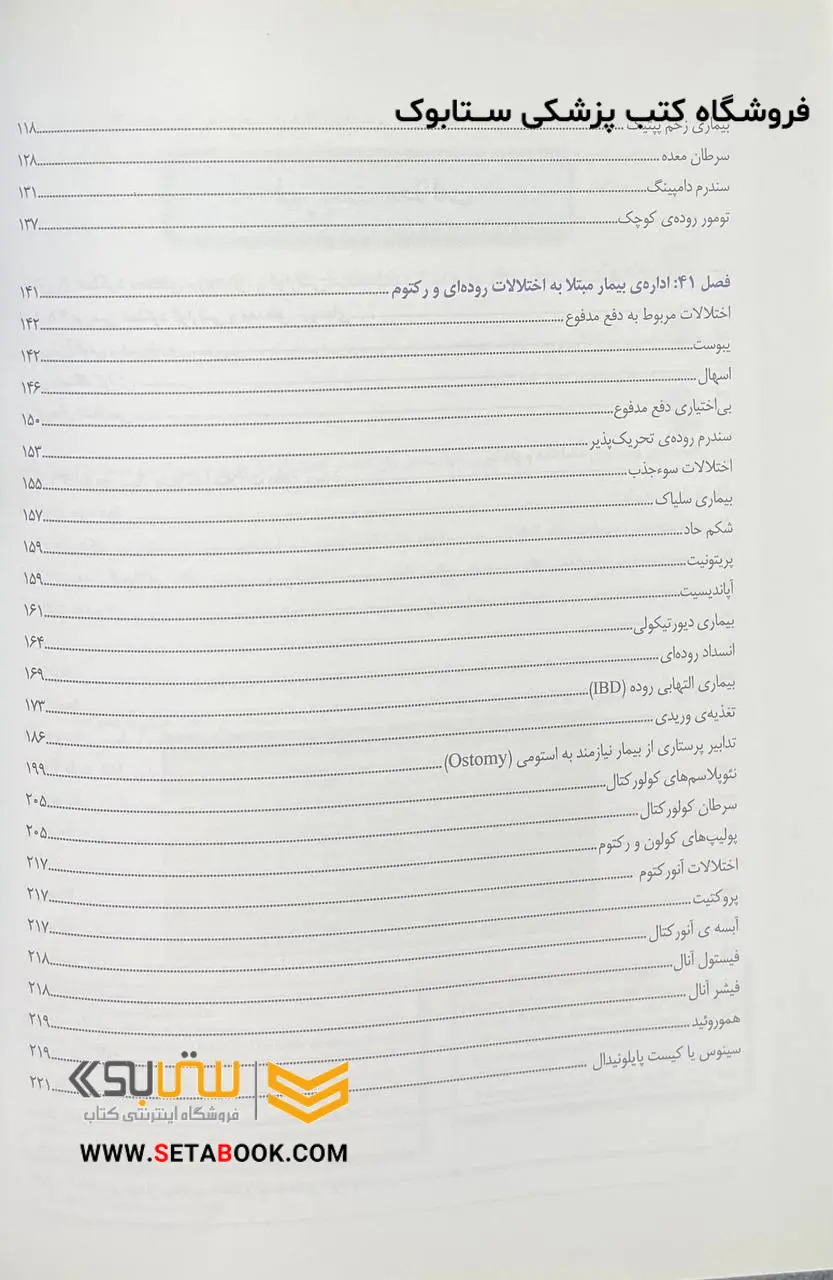 فروشگاه کتب پزشکی ستابوک
بیماری زخم پپتیک ........ ۱۱۸
سرطان معده ........ ۱۲۸
سندرم دامپینگ ........ ۱۳۱
تومور روده‌ی کوچک ........ ۱۳۷
فصل ۴۱: اداره‌ی بیمار مبتلا به اختلالات روده‌ای و رکتوم ........ ۱۴۱
اختلالات مربوط به دفع مدفوع ........ ۱۴۲
یبوست ........ ۱۴۲
اسهال ........ ۱۴۶
بی‌اختیاری دفع مدفوع ........ ۱۵۰
سندرم روده‌ی تحریک‌پذیر ........ ۱۵۳
اختلالات سوءجذب ........ ۱۵۵
بیماری سلیاک ........ ۱۵۷
شکم حاد ........ ۱۵۹
پریتونیت ........ ۱۵۹
آپاندیسیت ........ ۱۶۱
بیماری دیورتیکولی ........ ۱۶۴
انسداد روده‌ای ........ ۱۶۹
بیماری التهابی روده (IBD) ........ ۱۷۳
تغذیه‌ی وریدی ........ ۱۸۶
تدابیر پرستاری از بیمار نیازمند به استومی (Ostomy) ........ ۱۹۹
نئوپلاسم‌های کولورکتال ........ ۲۰۵
سرطان کولورکتال ........ ۲۰۵
پولیپ‌های کولون و رکتوم ........ ۲۱۷
اختلالات آنورکتوم ........ ۲۱۷
پروکتیت ........ ۲۱۷
آبسه ی آنورکتال ........ ۲۱۸
فیستول آنال ........ ۲۱۸
فیشر آنال ........ ۲۱۹
هموروئید ........ ۲۱۹
سینوس یا کیست پایلونیدال ........ ۲۲۱
ستابوک
فروشگاه اینترنتی کتاب
WWW.SETABOOK.COM